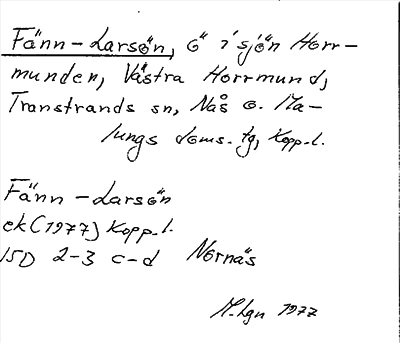 Fänn-Larsön, ö i sjön Horr-
munden, Västra Horrmund,
Transtrands sn, Nås o. Ma-
lungs doms. tg, Kopp.l.
Fänn-Larsön
ek (1977) Kopp.l.
15D 2-3 c-d Nornäs
M.Lgn 1977